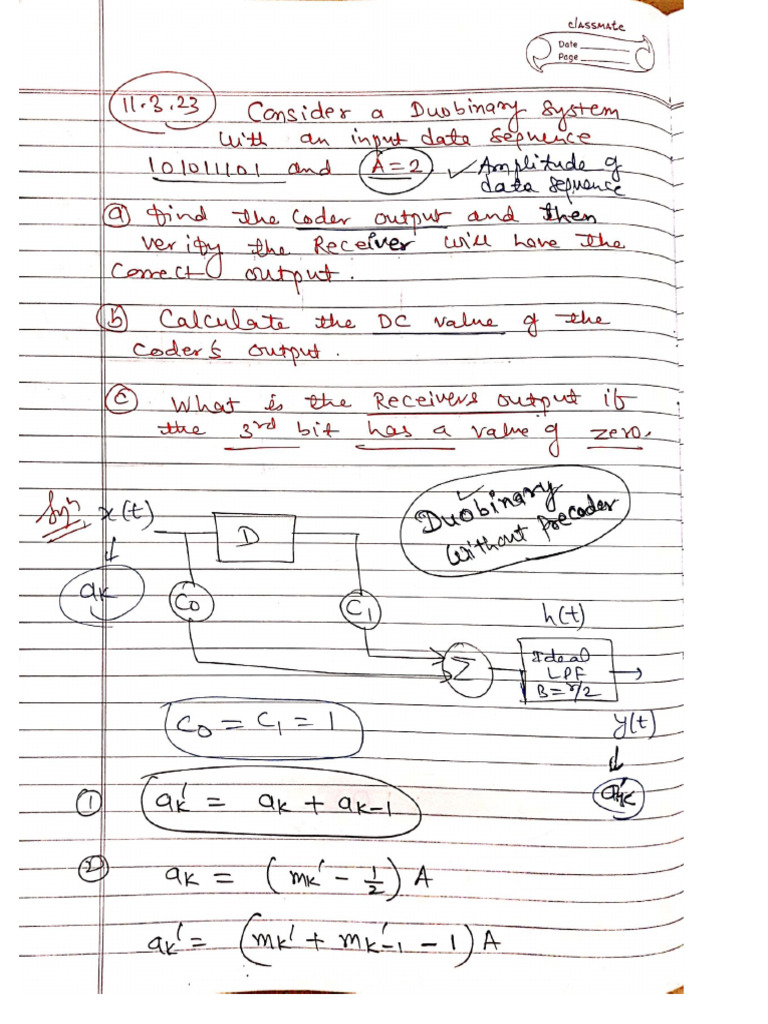 classmate
Date
Page
11.3.23 Consider a Duobinary System
with an input data sequence
101011101 and A=2 ✓ Amplitude of
data sequence
(a) find the coder output and then
verify the Receiver will have the
correct output.
(b) Calculate the DC value of the
coder's output.
(c) What is the Receivers output if
the 3rd bit has a value of zero.
Soln x(t) D Duobinary
without precoder
ak C0 C1 h(t)
Σ Ideal
LPF
B=r/2
C0 = C1 = 1 y(t)
(1) ak' = ak + ak-1
(2) ak = (mk' - 1/2) A
ak' = (mk' + mk'-1 - 1) A